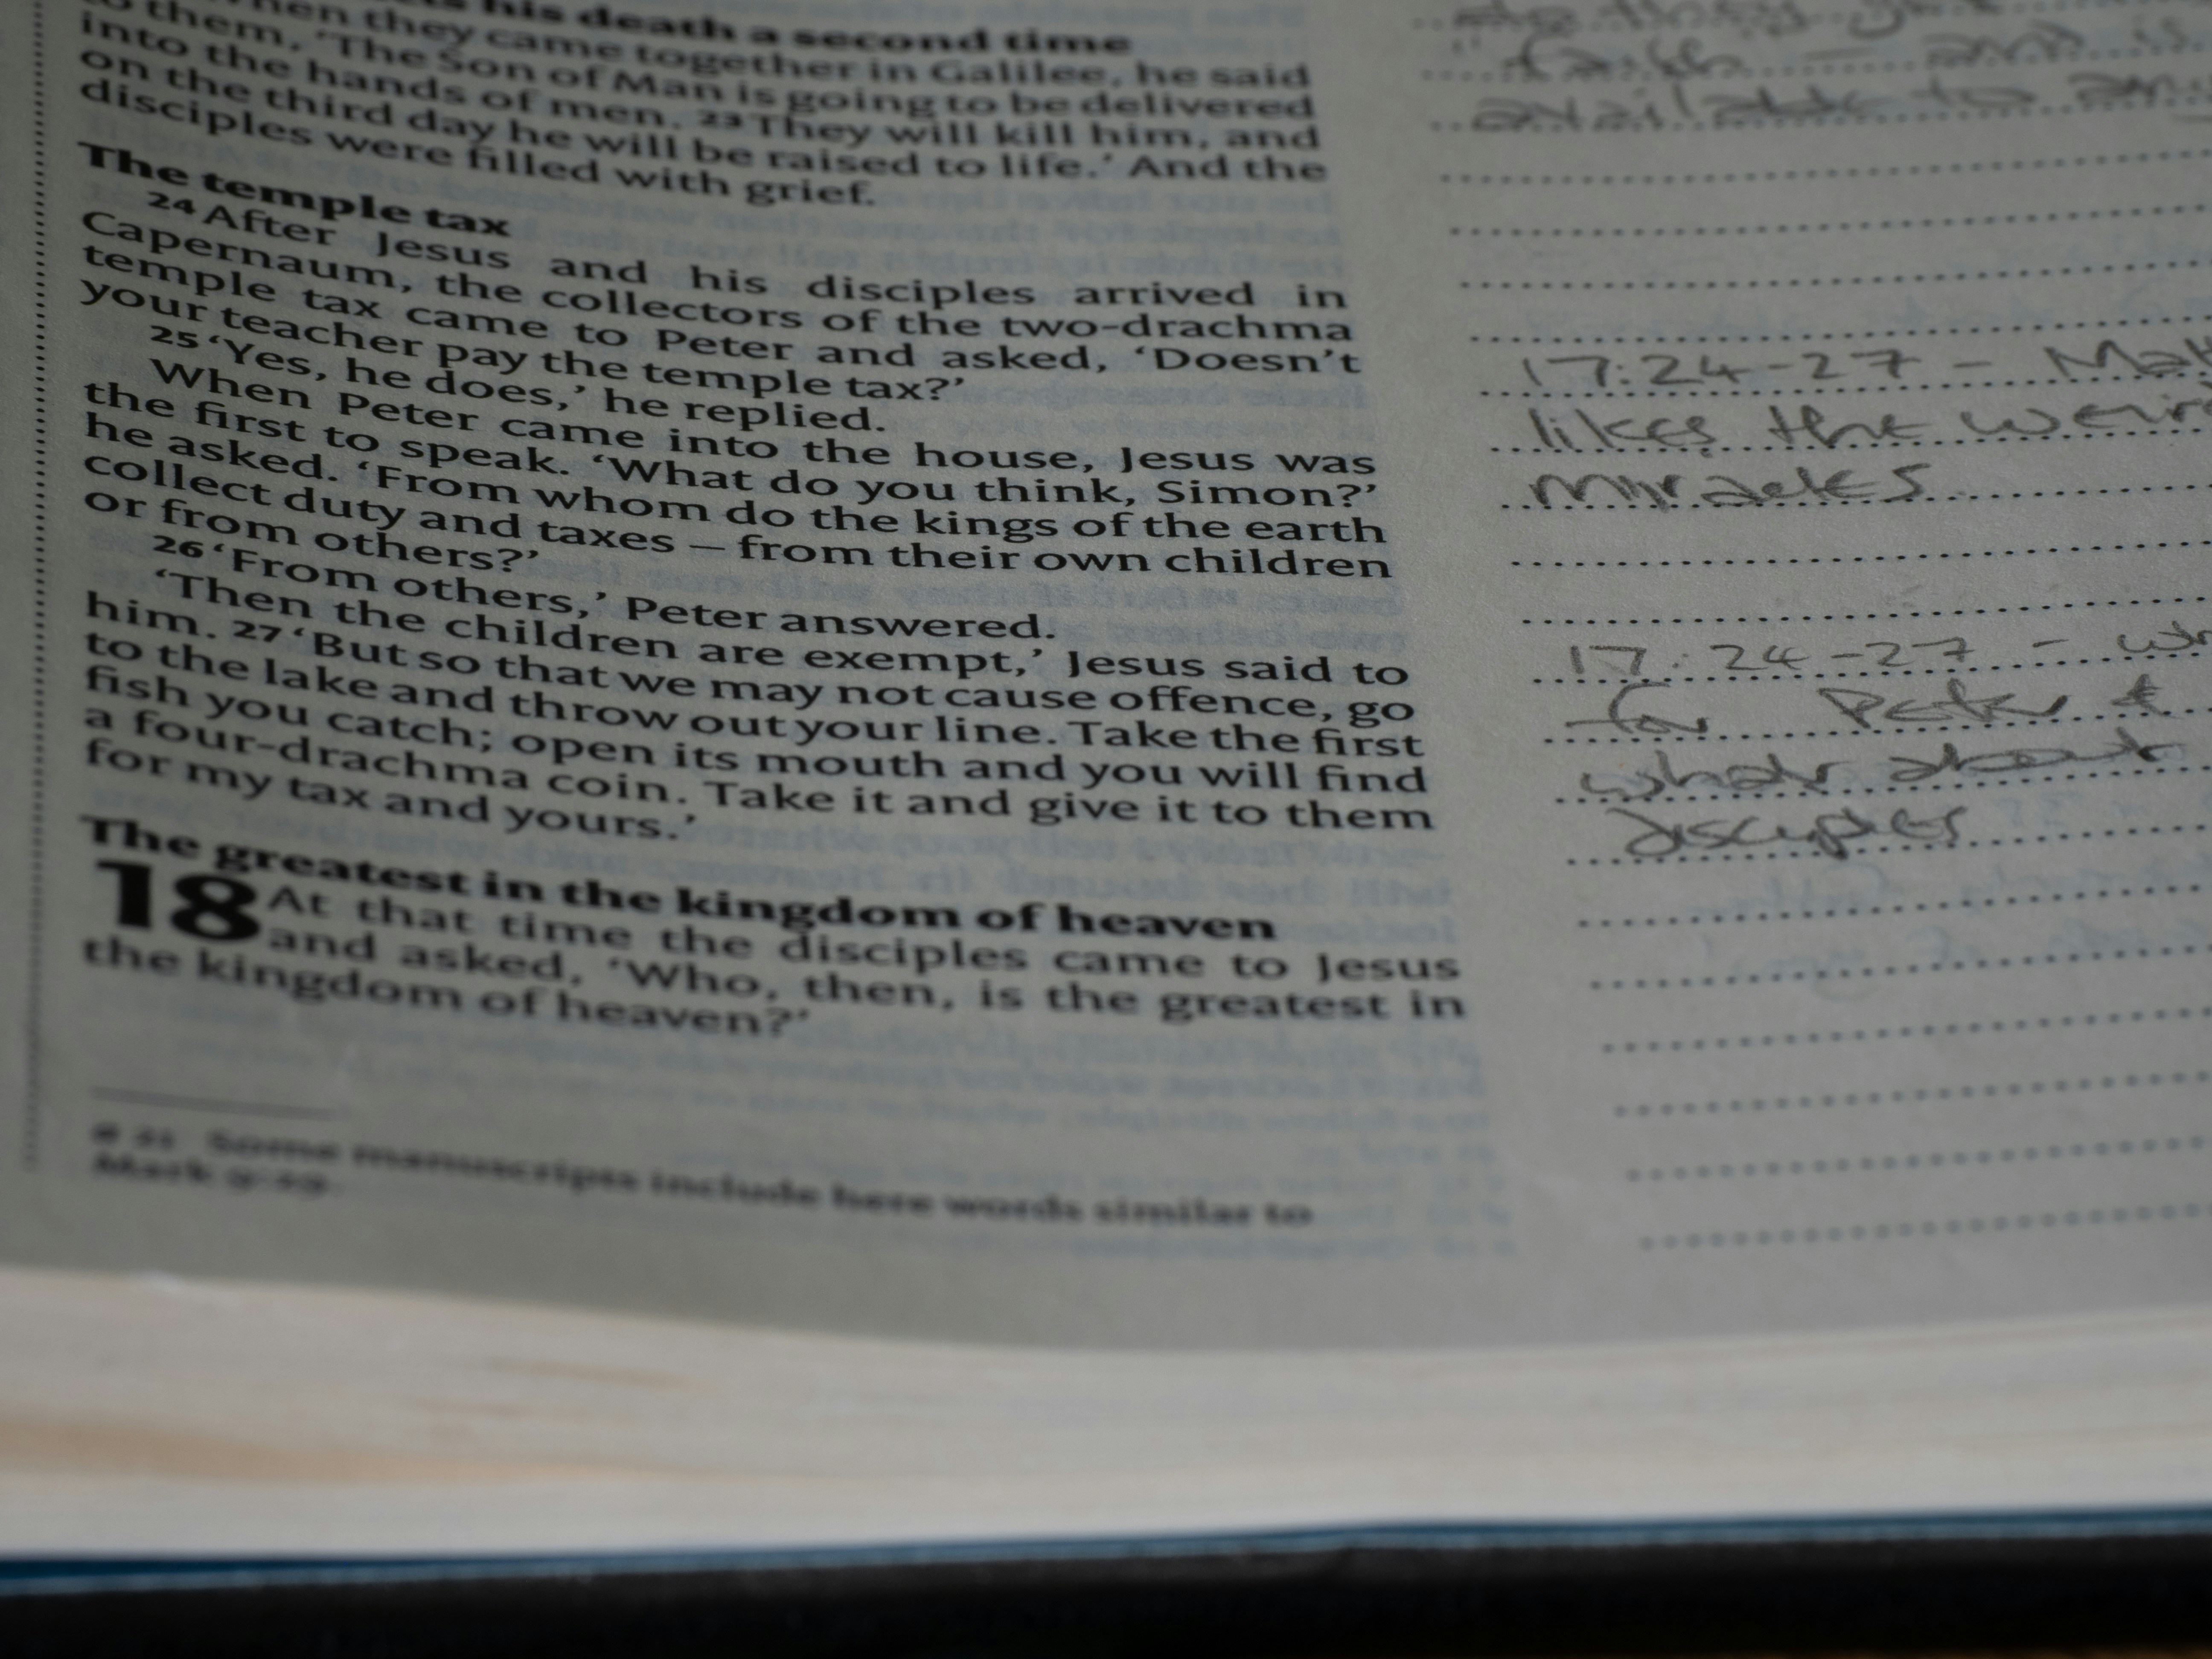 his death a second time
they came together in Galilee, he said
to them, ‘The Son of Man is going to be delivered
into the hands of men. 23 They will kill him, and
on the third day he will be raised to life.’ And the
disciples were filled with grief.
The temple tax
24 After Jesus and his disciples arrived in
Capernaum, the collectors of the two-drachma
temple tax came to Peter and asked, ‘Doesn’t
your teacher pay the temple tax?’
25 ‘Yes, he does,’ he replied.
When Peter came into the house, Jesus was
the first to speak. ‘What do you think, Simon?’
he asked. ‘From whom do the kings of the earth
collect duty and taxes – from their own children
or from others?’
26 ‘From others,’ Peter answered.
‘Then the children are exempt,’ Jesus said to
him. 27 ‘But so that we may not cause offence, go
to the lake and throw out your line. Take the first
fish you catch; open its mouth and you will find
a four-drachma coin. Take it and give it to them
for my tax and yours.’
The greatest in the kingdom of heaven
18 At that time the disciples came to Jesus
and asked, ‘Who, then, is the greatest in
the kingdom of heaven?’
21 Some manuscripts include here words similar to
Mark 9:29.
faith – and is
available to
17:24-27 –
likes the
miracles
17:24-27 –
for Peter &
what about
disciples